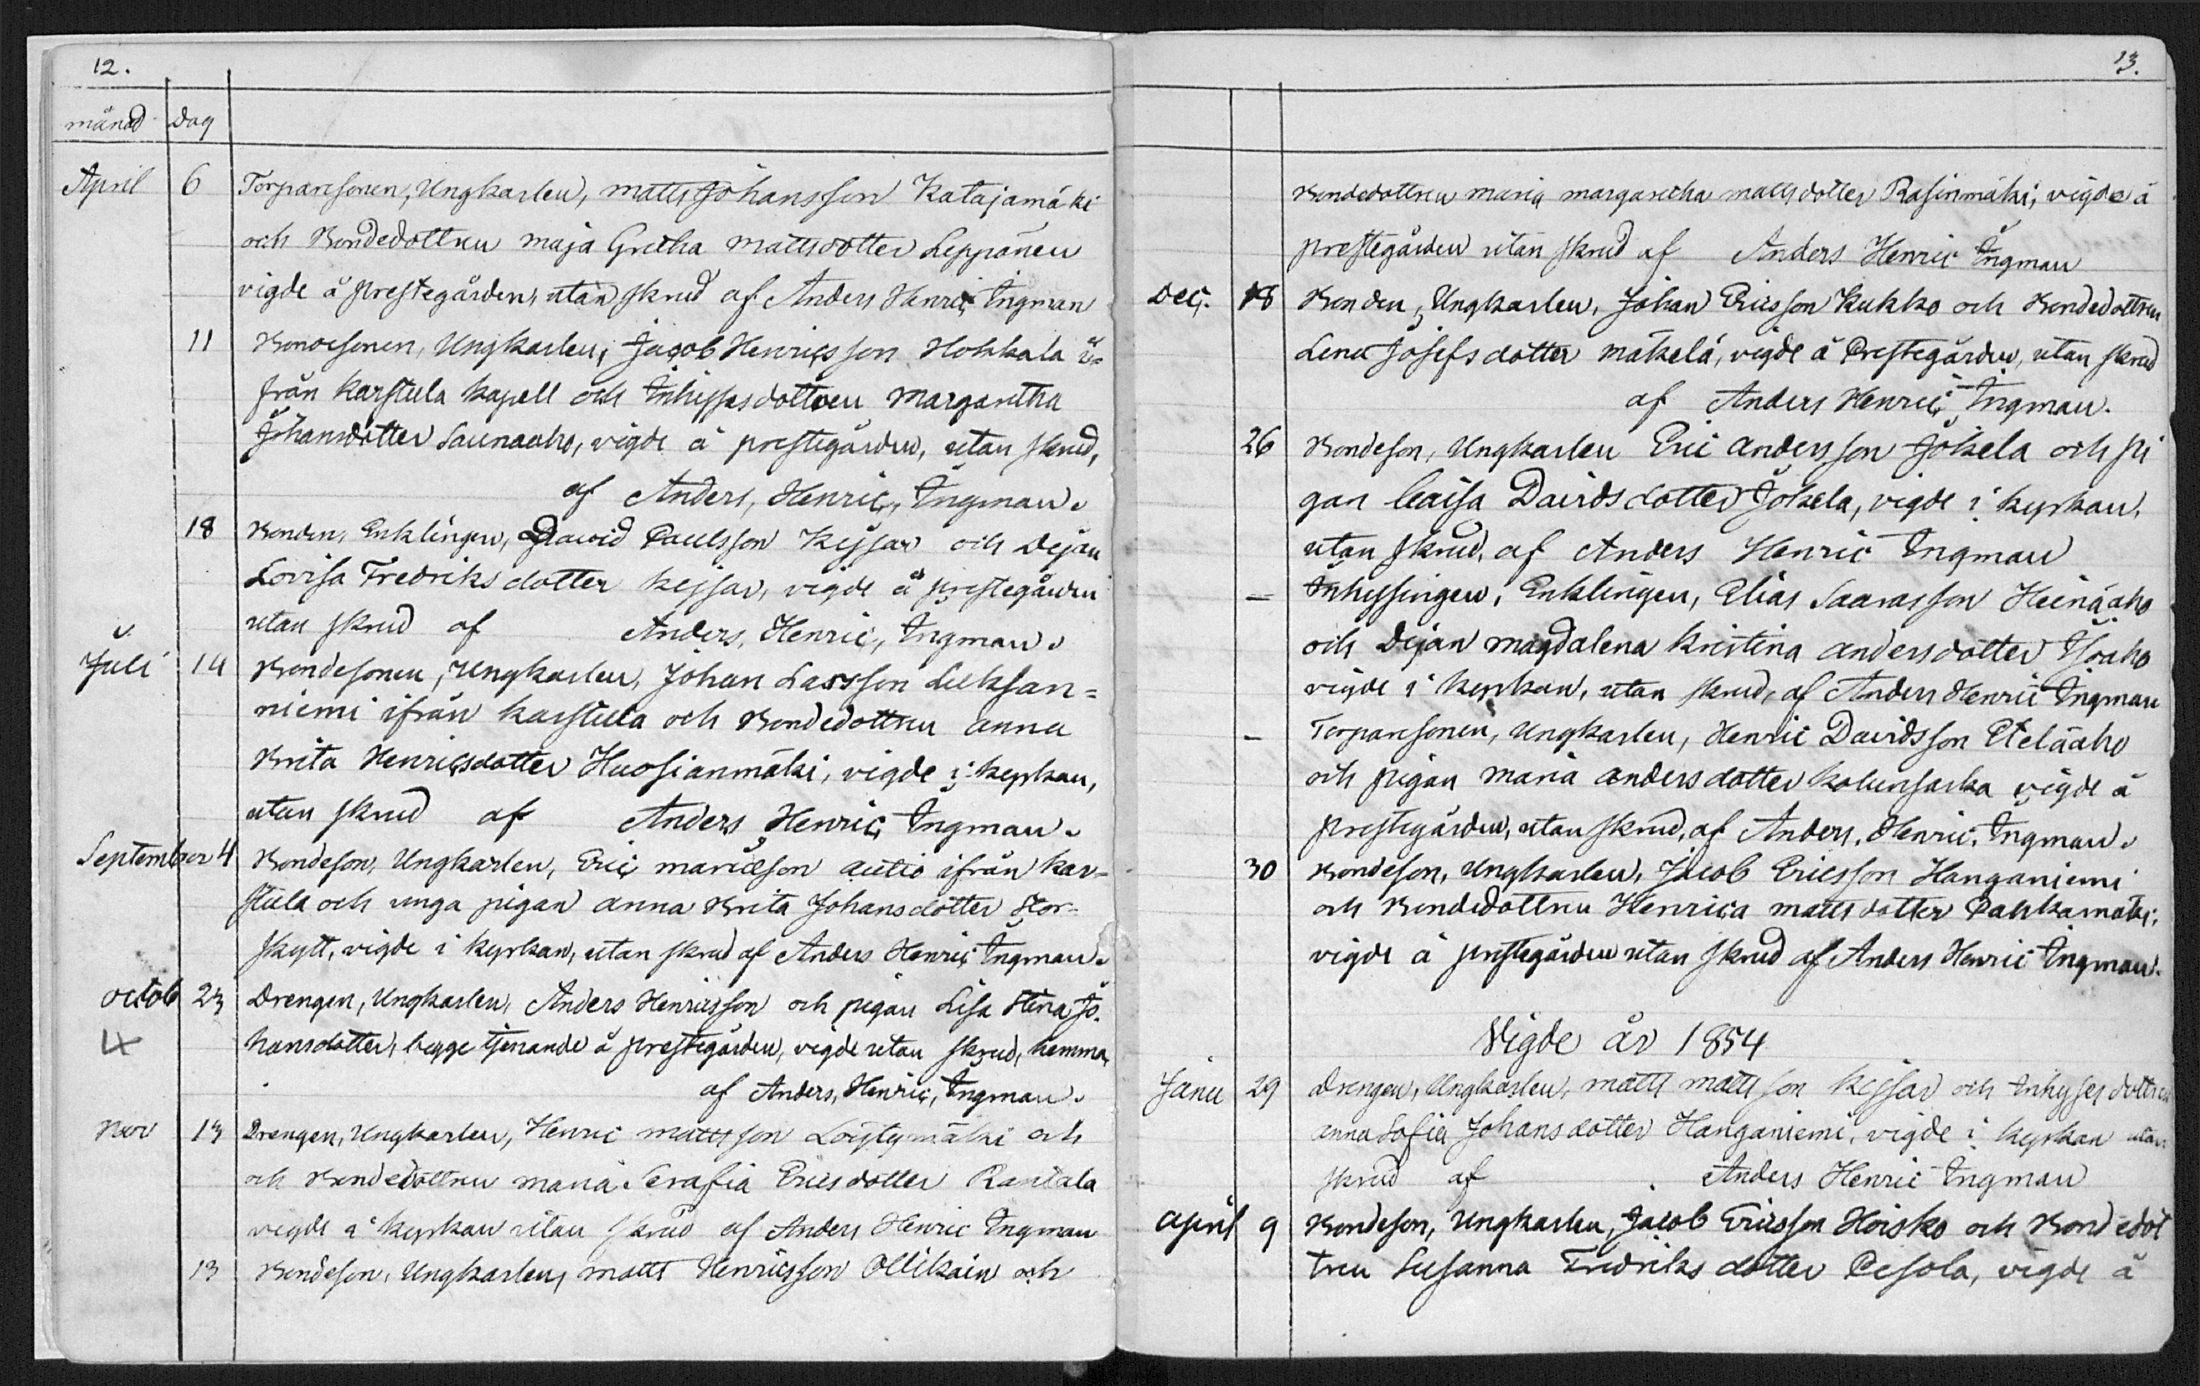 12.
månad Dag
April 6 Torparesonen, Ungkarlen, Matts Johansson Katajamäki
och Bondedottren Maja Gretha Mattsdotter Leppänen
vigde å prestegården, utan skrud af Anders Henric Ingman
11 Bondesonen, Ungkarlen, Jacob Henricsson Hokkala i=
från Karstula Kapell och Inhysesdottren Margaretha
Johansdotter Saunaaho, vigde å prestegården, utan skrud,
af Anders, Henric, Ingman.
18 Bonden, Enklingen, David Paulsson Kejsar och Dejan
Lovisa Fredriksdotter Kejsar, vigde å prestegården
utan skrud af Anders, Henric, Ingman.
Juli 14 Bondesonen, Ungkarlen, Johan Larsson Leuksan=
niemi ifrån Karstula och Bondedottren Anna
Brita Henricsdotter Huosianmäki, vigde i kyrkan,
utan skrud af Anders Henric Ingman.
September 4 Bondeson, Ungkarlen, Eric Mariæson Autio ifrån Kar=
stula och unga pigan Anna Brita Johansdotter Stor=
skytt, vigde i kyrkan, utan skrud af Anders Henric Ingman.
Octob 23 Drengen, Ungkarlen, Anders Henricsson och pigan Lisa Stina Jo=
hansdotter, begge tjenande å prestegården, vigde utan skrud, hemma,
af Anders, Henric, Ingman.
Nov 13 Drengen, Ungkarlen, Henric Mattsson Löytymäki och
och Bondedottren Maria Serafia Ericsdotter Rantala
vigde i kyrkan utan skrud af Anders Henric Ingman
13 Bondeson, Ungkarlen, Matts Henricsson Ollikain och
13.
Bondedottren Maria Margaretha Mattsdotter Rasinmäki, vigde å
prestegården utan skrud af Anders Henric Ingman
Dec. 18 Bonden, Ungkarlen, Johan Ericsson Kukko och Bondedottren
Lena Josefsdotter Mäkelä, vigde å Prestegården, utan skrud
af Anders Henric Ingman.
26 Bondeson, Ungkarlen Eric Andersson Jokela och pi
gan Caisa Davidsdotter Jokela, vigde i kyrkan,
utan skrud, af Anders Henric Ingman
— Inhysingen, Enklingen, Elias Saarasson Heinäaho
och Dejan Magdalena Kristina Andersdotter Isoaho
vigde i kyrkan, utan skrud, af Anders Henric Ingman
— Torparesonen, Ungkarlen, Henric Davidsson Eteläaho
och pigan Maria Andersdotter Kolunsarka vigde å
prestegården, utan skrud, af Anders, Henric, Ingman.
30 Bondeson, Ungkarlen, Jacob Ericsson Hanganiemi
och Bondedottren Henrica Mattsdotter Pahkamäki,
vigde å prestegården utan skrud af Anders Henric Ingman.
Vigde år 1854
Janu 29 Drengen, Ungkarlen, Matts Mattsson Kejsar och Inhysesdottren
Anna Sofia Johansdotter Hanganiemi, vigde i kyrkan utan
skrud af Anders Henric Ingman
April 9 Bondeson, Ungkarlen, Jacob Ericsson Hoisko och Bondedot
tren Susanna Fredriksdotter Pesola, vigde å